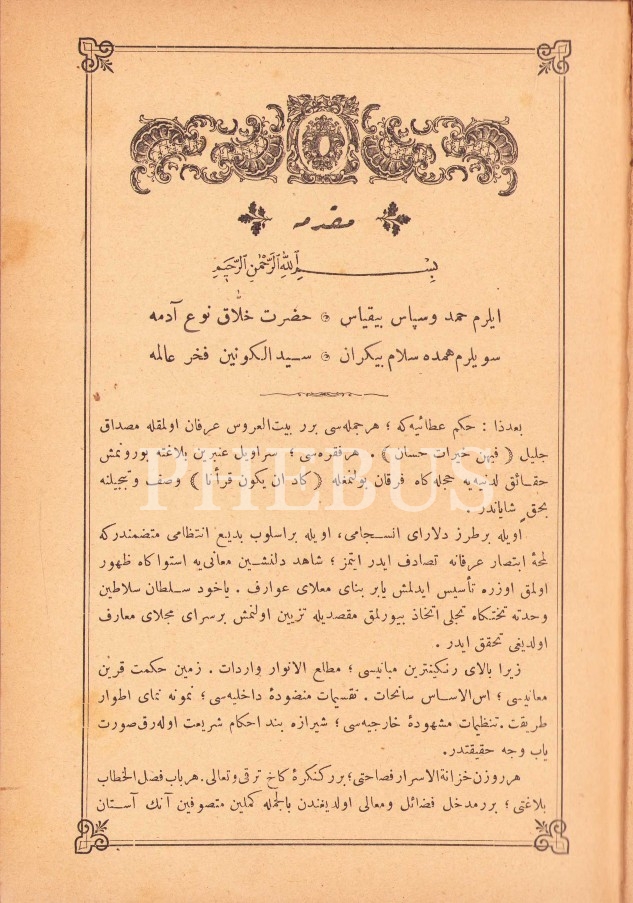 مقدمه
بِسْمِ ٱللّٰهِ ٱلرَّحْمٰنِ ٱلرَّحِيمِ
ايلرم حمد و سپاس بيقياس حضرت خلّاق نوع آدمه
سويلرم همده سلام بيكران سيد الكونين فخر عالمه
بعدذا : حكم عطائيه كه ؛ هر جمله سى برر بيت العروس عرفان اولمقله مصداق
جليل ( فيهن خيرات حسان ) . هر فقره سى ؛ سراويل عنبرين بلاغته بورونمش
حقائق لدنيه يه حجله كاه فرقان بولنمغله ( كاد ان يكون قرآنا ) وصف و تبجيلنه
بحق شاياندر .
اويله بر طرز دلاراى انسجامى، اويله بر اسلوب بديع انتظامى متضمندركه
لمحۀ ابتصار عرفانه تصادف ايدر ايتمز ؛ شاهد دلنشين معانى يه استواكاه ظهور
اولمق اوزره تأسيس ايدلمش يا بر بناى معلاى عوارف . ياخود سلطان سلاطين
وحدته تختكاه تجلى اتخاذ بيورلمق مقصديله تزيين اولنمش بر سراى مجلاى معارف
اولديغى تحقق ايدر .
زيرا بالاى رنكينترين مبانيسى ؛ مطلع الانوار واردات . زمين حكمت قرين
معانيسى ؛ اس الاساس سانحات . تقسيمات منضودۀ داخليه سى ؛ نمونه نماى اطوار
طريقت . تنظيمات مشهودۀ خارجيه سى ؛ شيرازه بند احكام شريعت اوله رق صورت
ياب وجه حقيقتدر.
هر روزن خزانة الاسرار فصاحتى ؛ برر كنكرۀ كاخ ترقى و تعالى . هر باب فصل الخطاب
بلاغتى ؛ برر مدخل فضائل و معالى اولديغندن بالجمله كملين متصوفين آنك آستان
PHEBUS